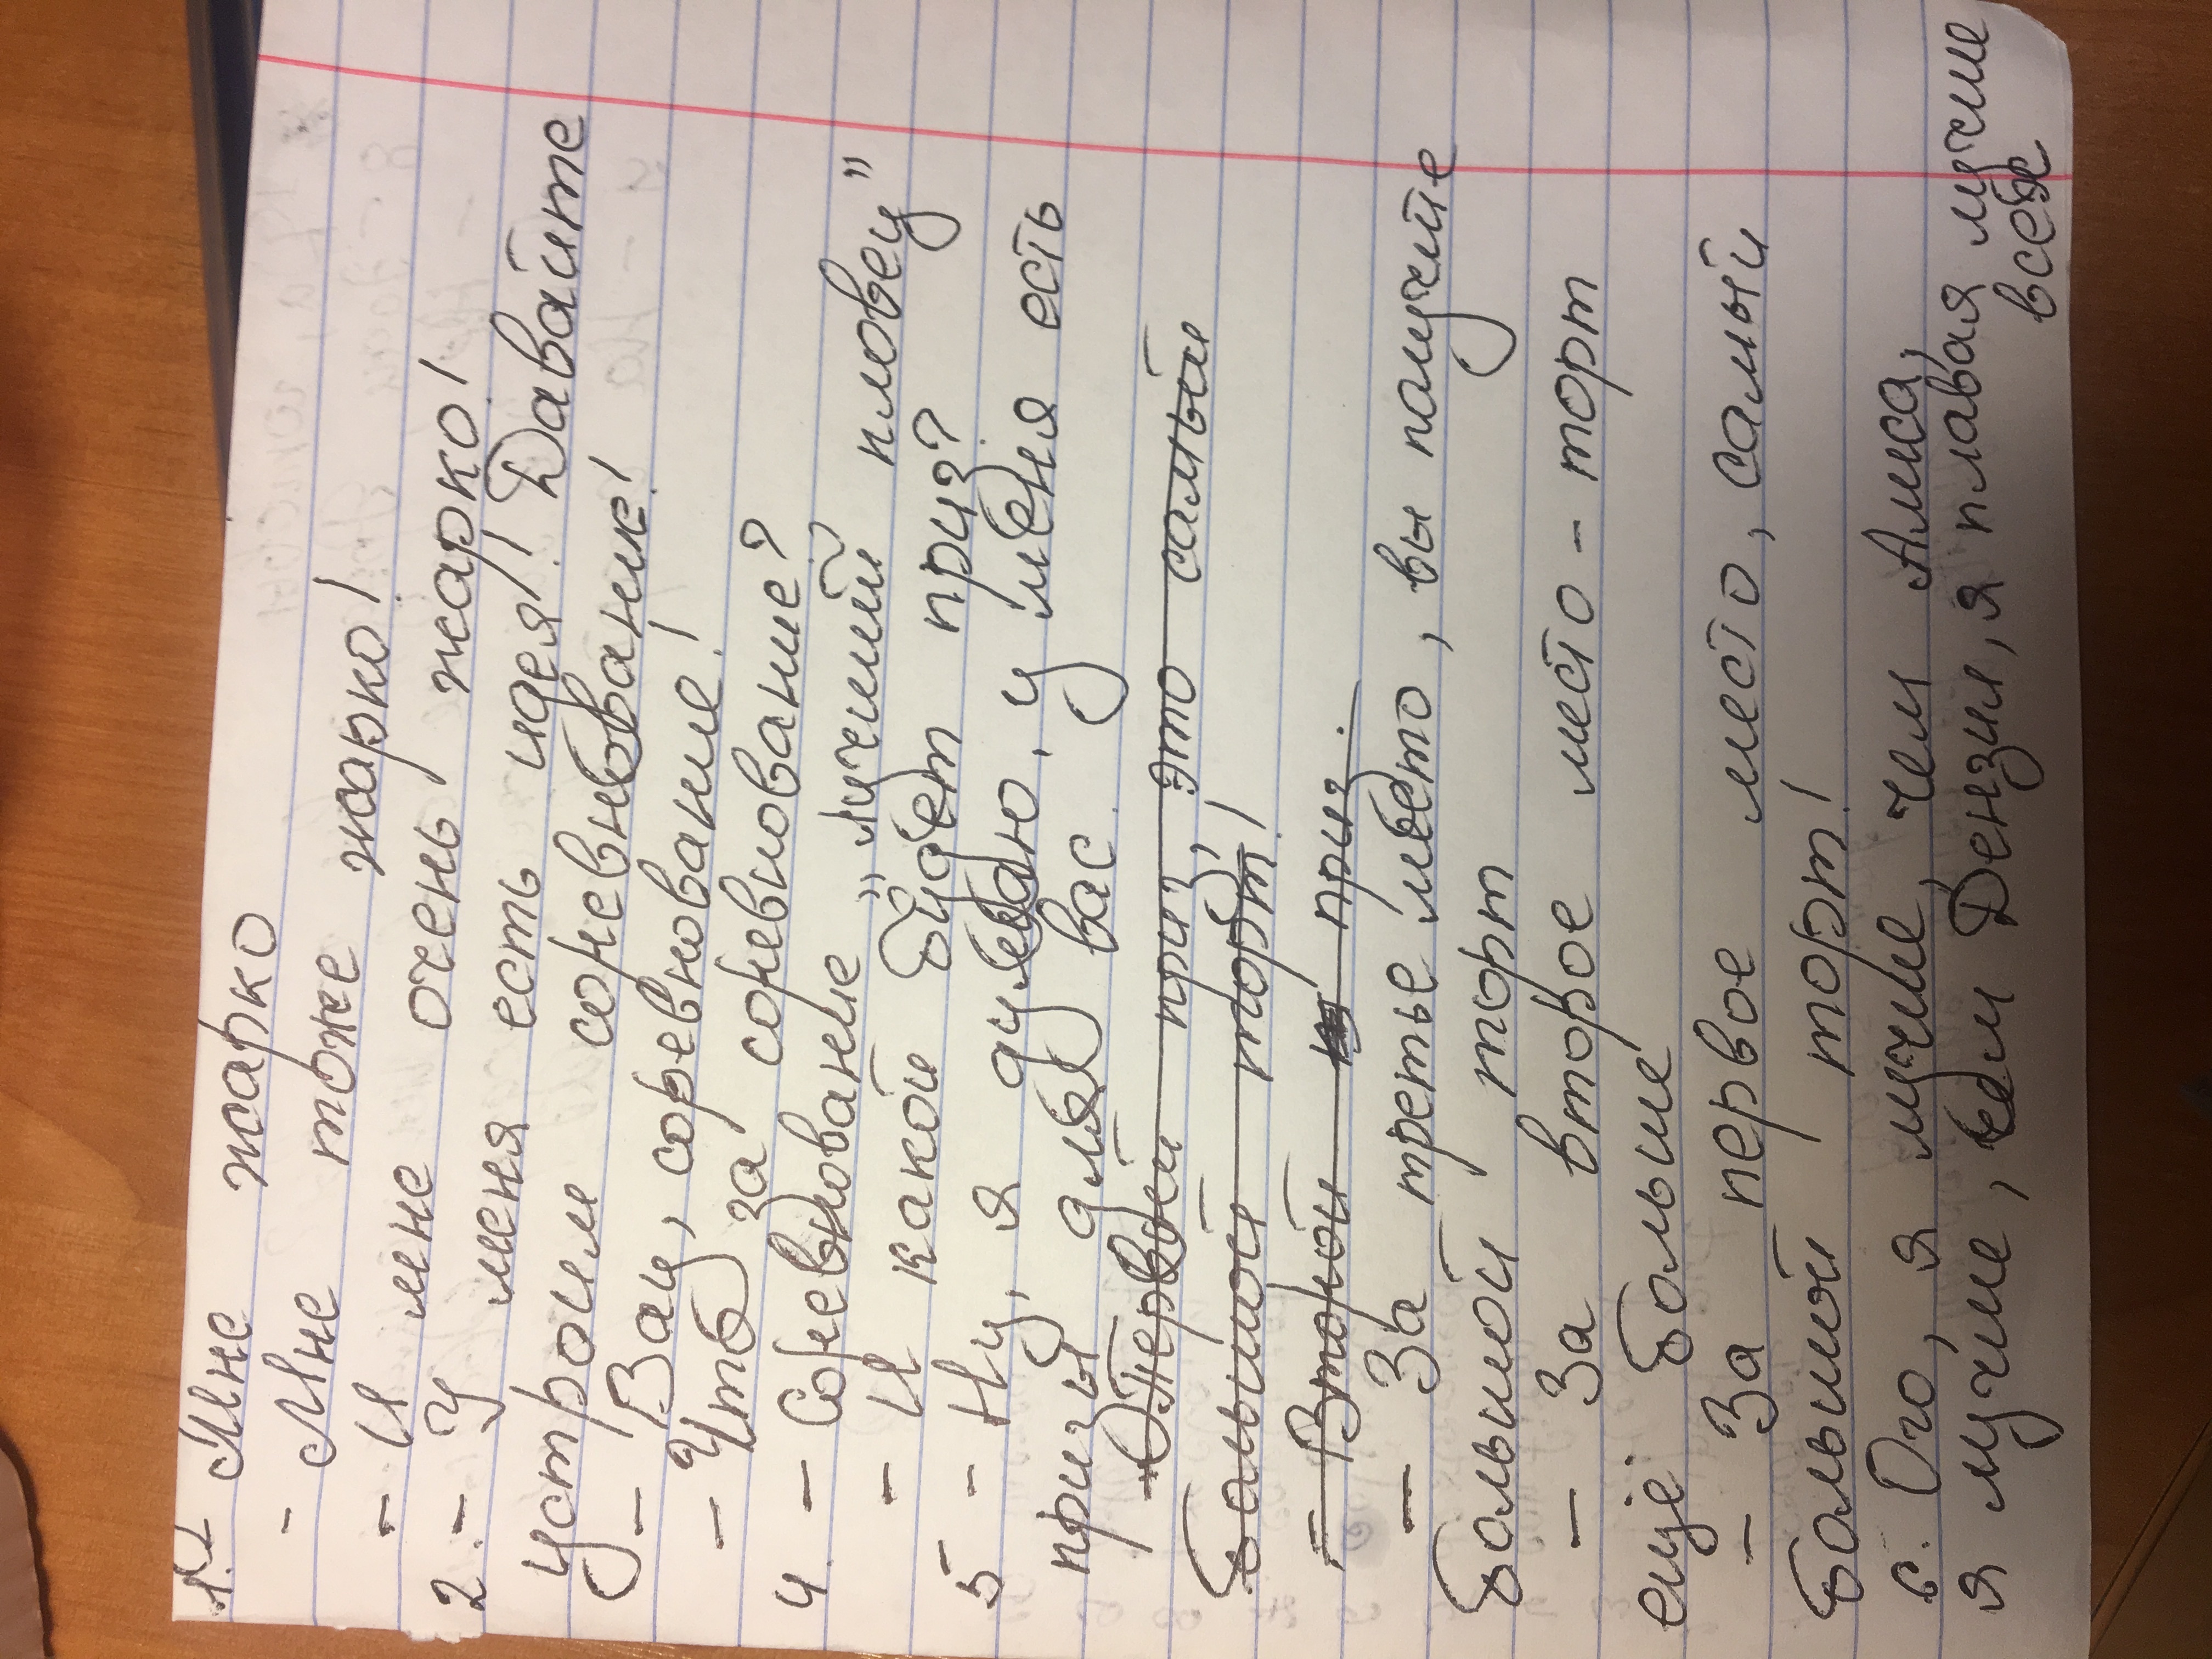 1. - Мне жарко
- Мне тоже жарко!
- И мне очень жарко!
2. - У меня есть идея! Давайте
устроим соревнование!
- Вау, соревнование!
- Что за соревнование?
4. - Соревнование "Лучший пловец"
- И какой будет приз?
5 - Ну, я думаю, у меня есть
призы для вас.
- Первый приз, это самый
большой торт!
- Второй приз.
- За третье место, вы получите
большой торт
- За второе место - торт
ещё больше
- За первое место, самый
большой торт!
6. Ого, я лучше, чем Алиса,
я лучше, чем Дензил, я плаваю лучше
всех